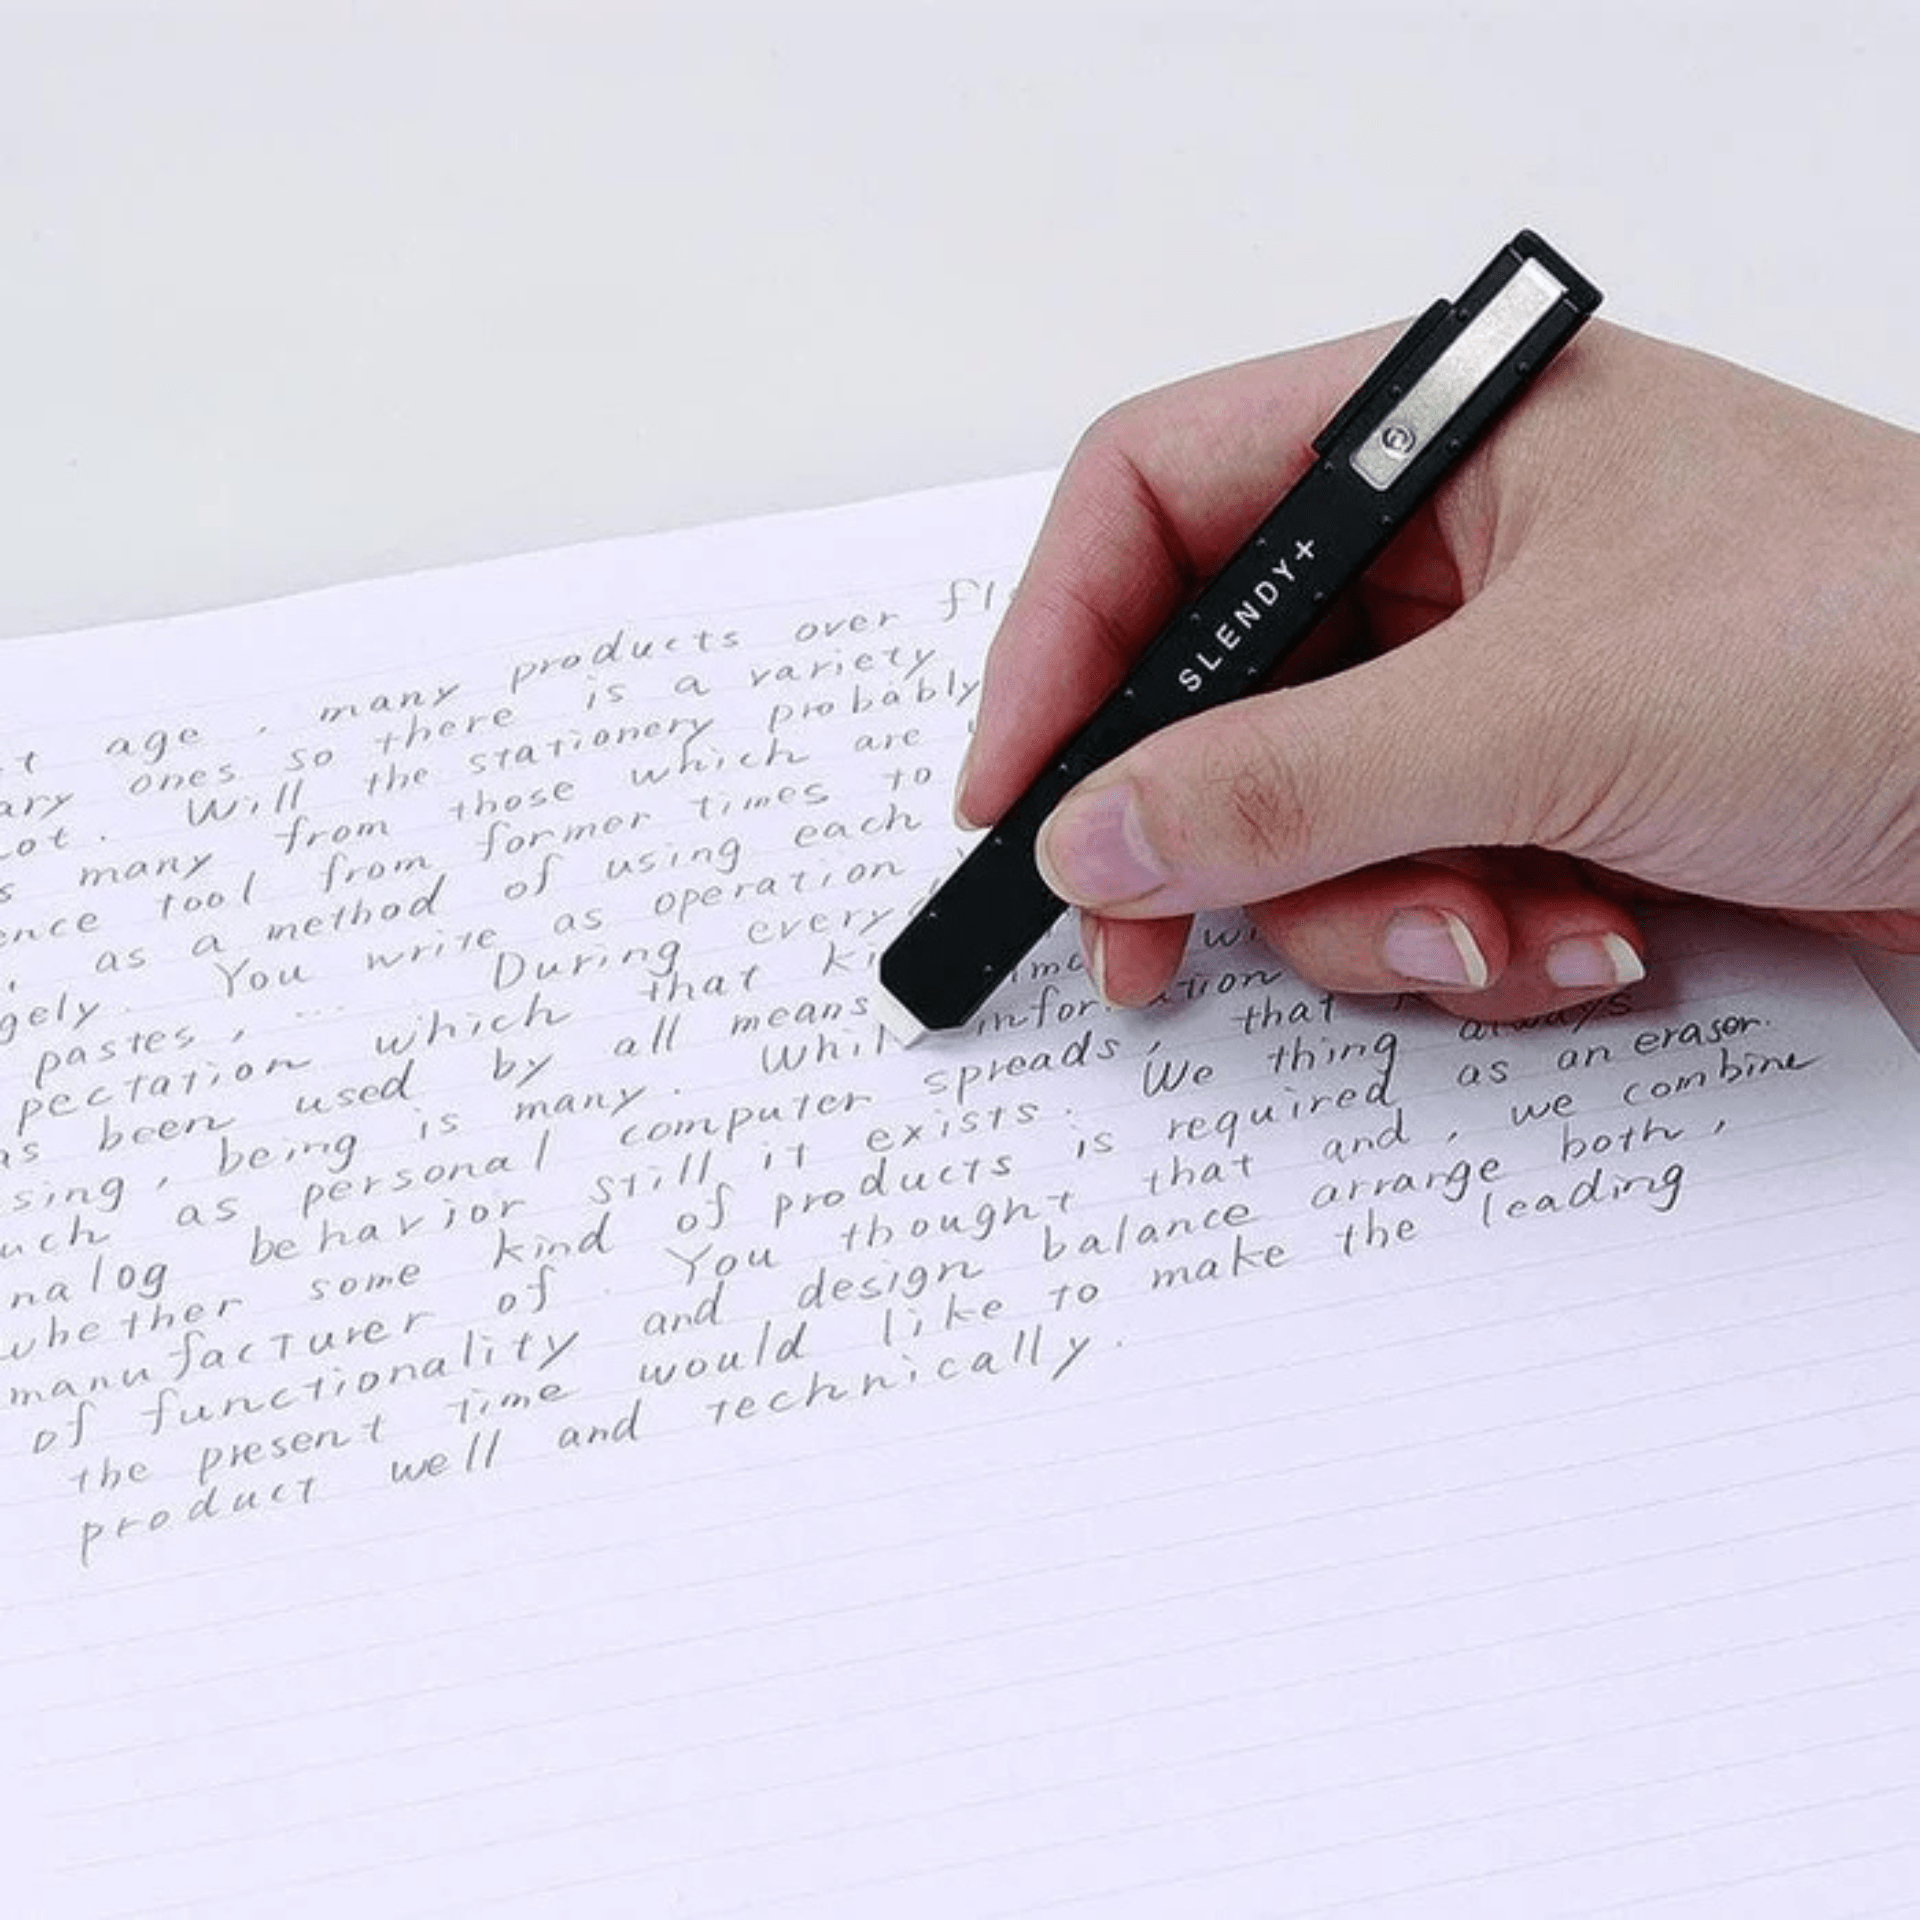 age, many products over
ones so there is a variety
Will the stationery probably
many from those which are
tool from former times to
, as a method of using each
You write as operation
pastes, ... During every
which that
been used by all means
being is many. information
as personal computer spreads, that
behavior still it exists. We thing always
whether some kind of products is required as an eraser.
manufacturer of. You thought that and, we combine
of functionality and design balance arrange both,
the present time would like to make the leading
product well and technically.
SLENDY+